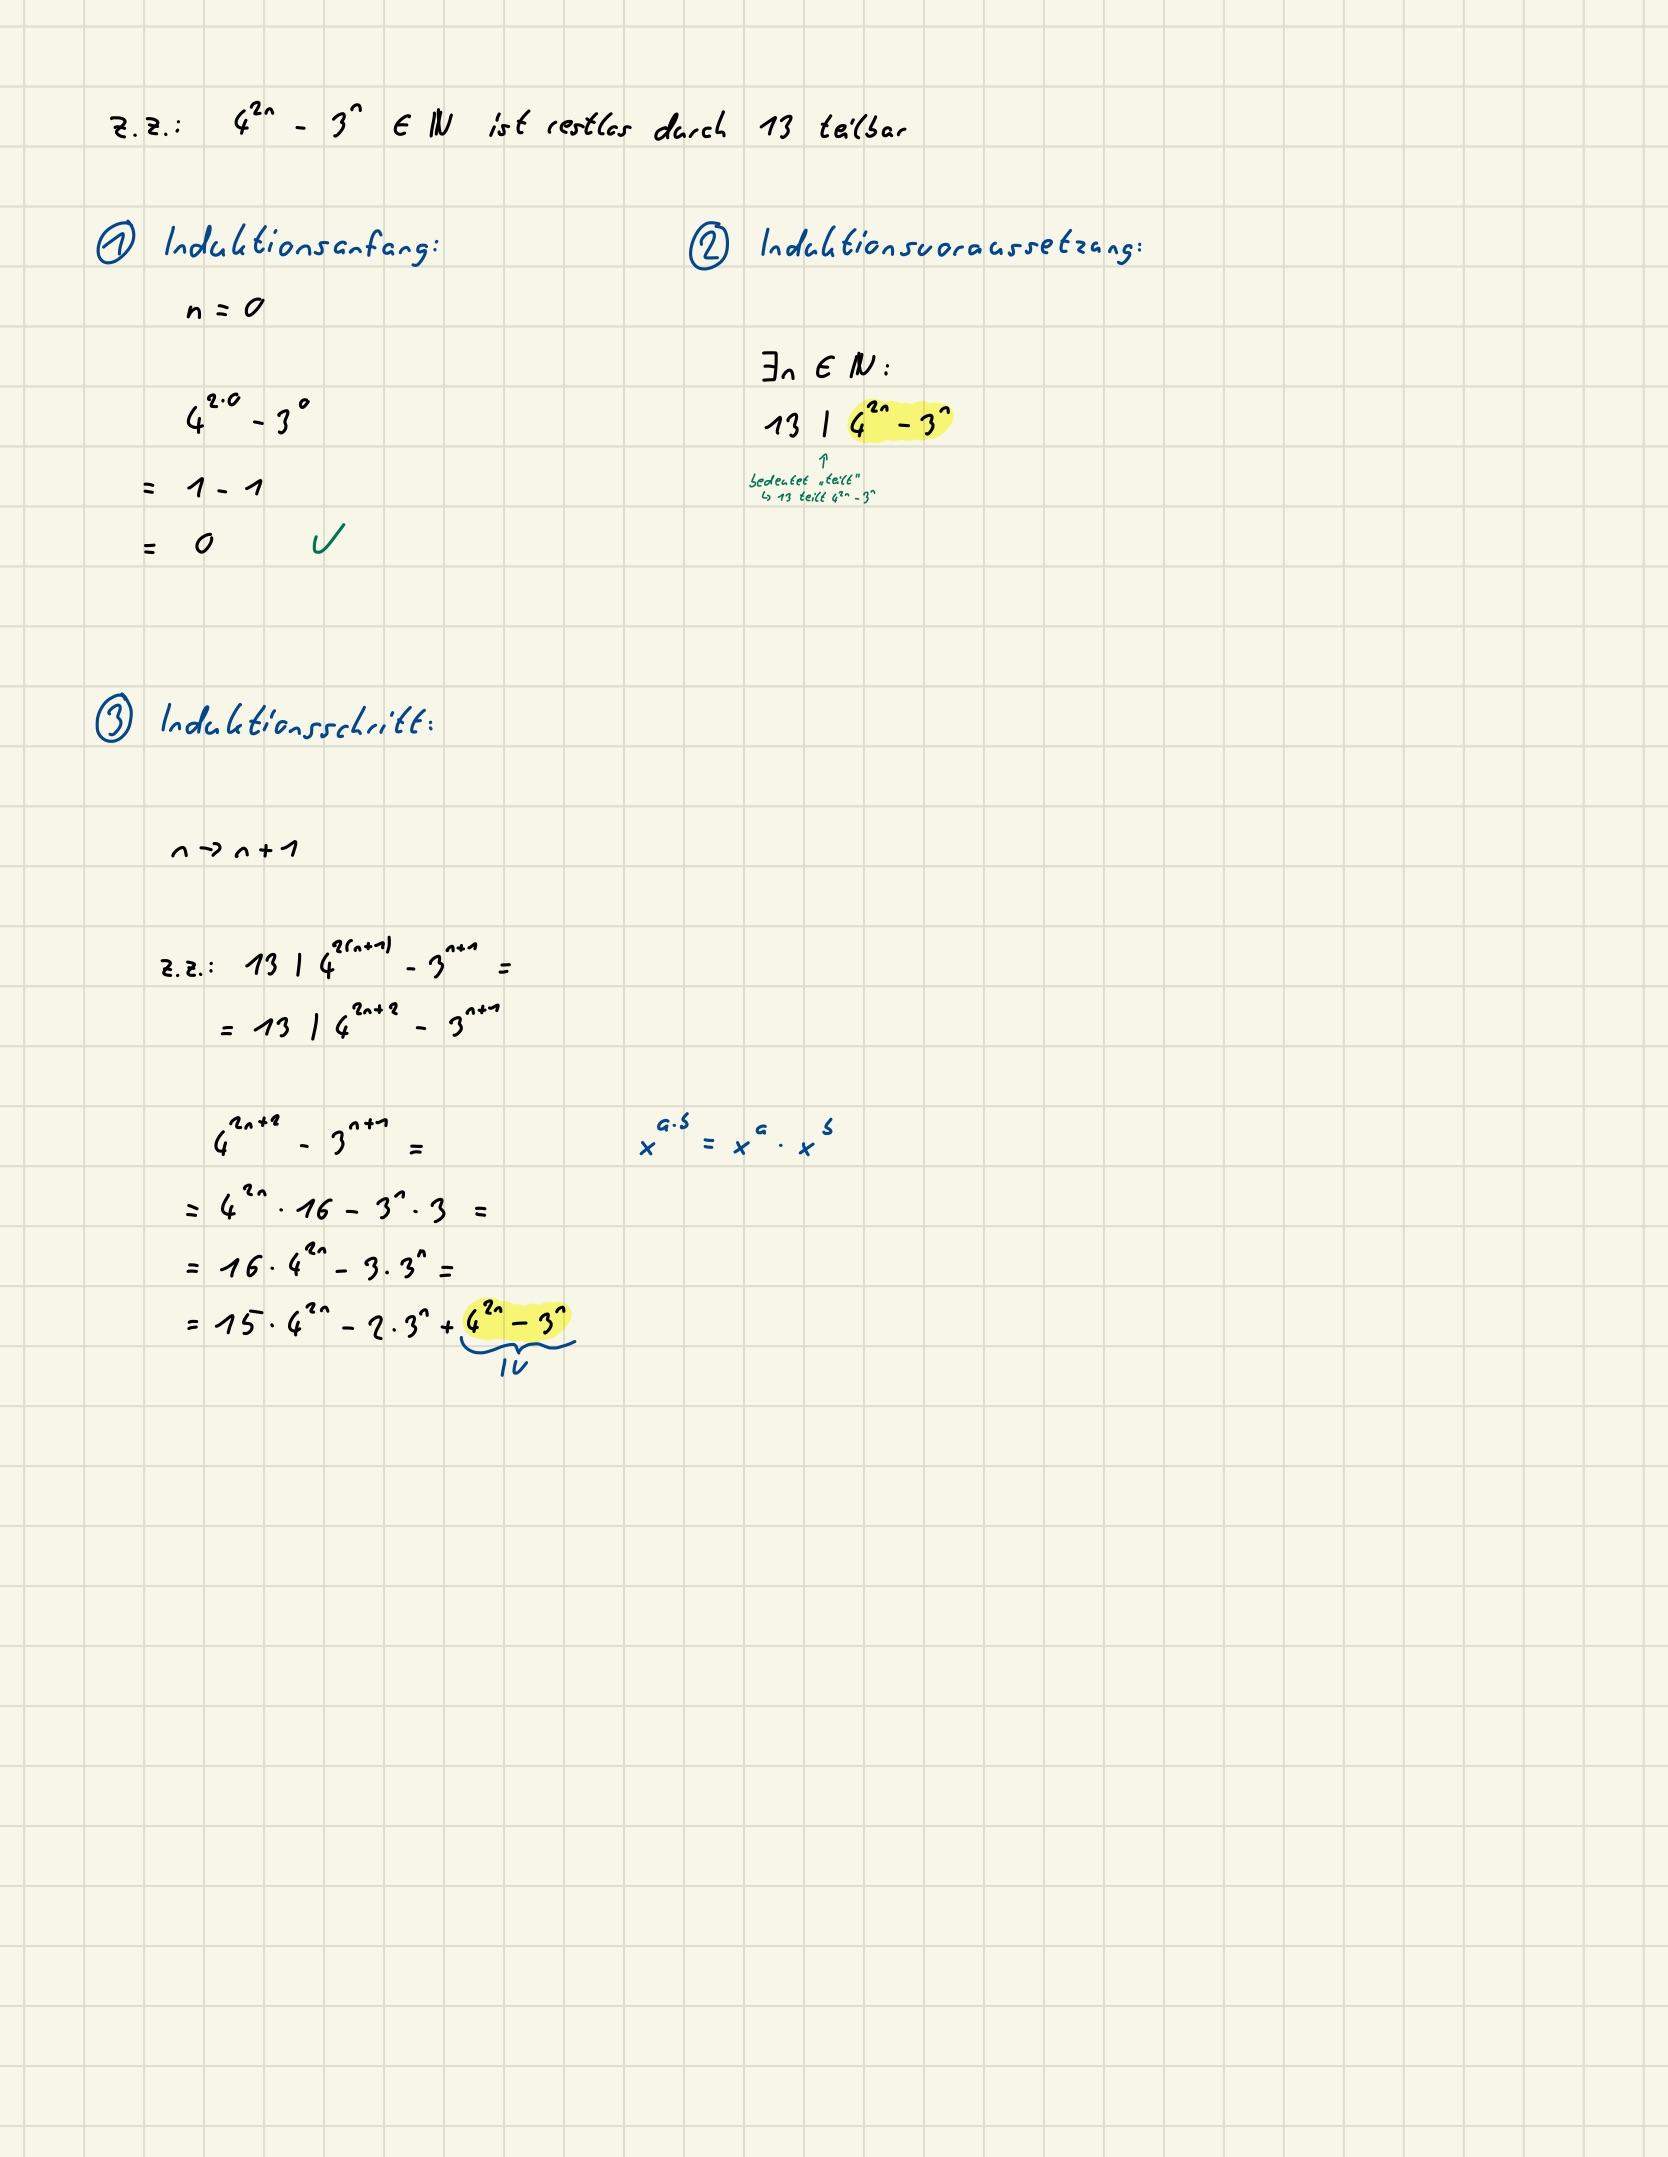 z.z.: 4^{2n} - 3^n ∈ ℕ ist restlos durch 13 teilbar
① Induktionsanfang:
n = 0
4^{2·0} - 3^0
= 1 - 1
= 0 ✓
② Induktionsvoraussetzung:
∃n ∈ ℕ:
13 | 4^{2n} - 3^n
↑
bedeutet „teilt"
↳ 13 teilt 4^{2n} - 3^n
③ Induktionsschritt:
n → n + 1
z.z.: 13 | 4^{2(n+1)} - 3^{n+1} =
= 13 | 4^{2n+2} - 3^{n+1}
4^{2n+2} - 3^{n+1} =
x^{a·b} = x^a · x^b
= 4^{2n} · 16 - 3^n · 3 =
= 16 · 4^{2n} - 3 · 3^n =
= 15 · 4^{2n} - 2 · 3^n + 4^{2n} - 3^n
IV